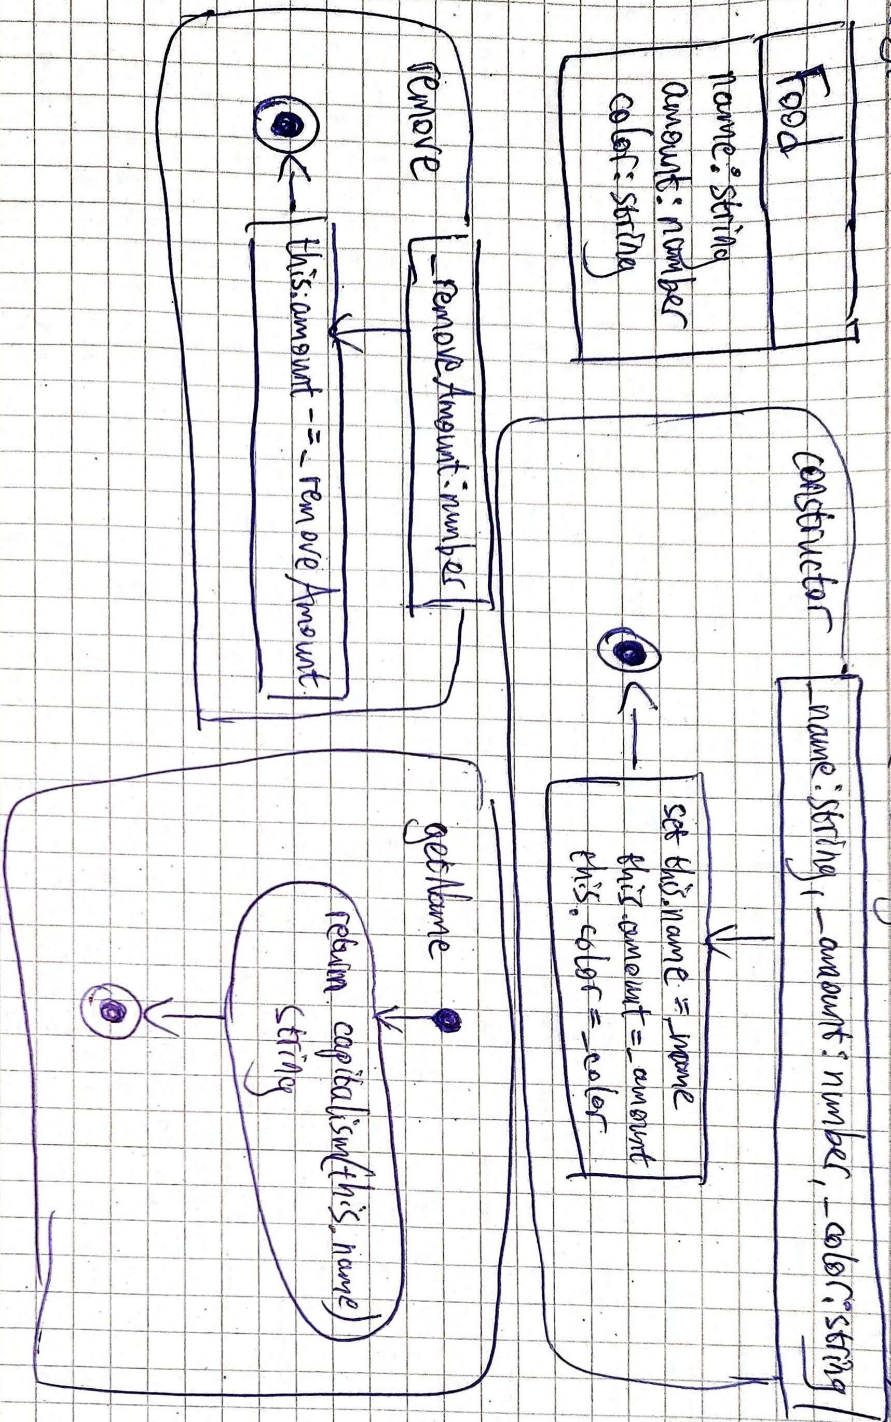 Food
name: string
amount: number
color: string
constructor
_name: string, _amount: number, _color: string
set this.name = _name
this.amount = _amount
this.color = _color
remove
_removeAmount: number
this.amount -= _removeAmount
getName
return capitalism(this.name)
string